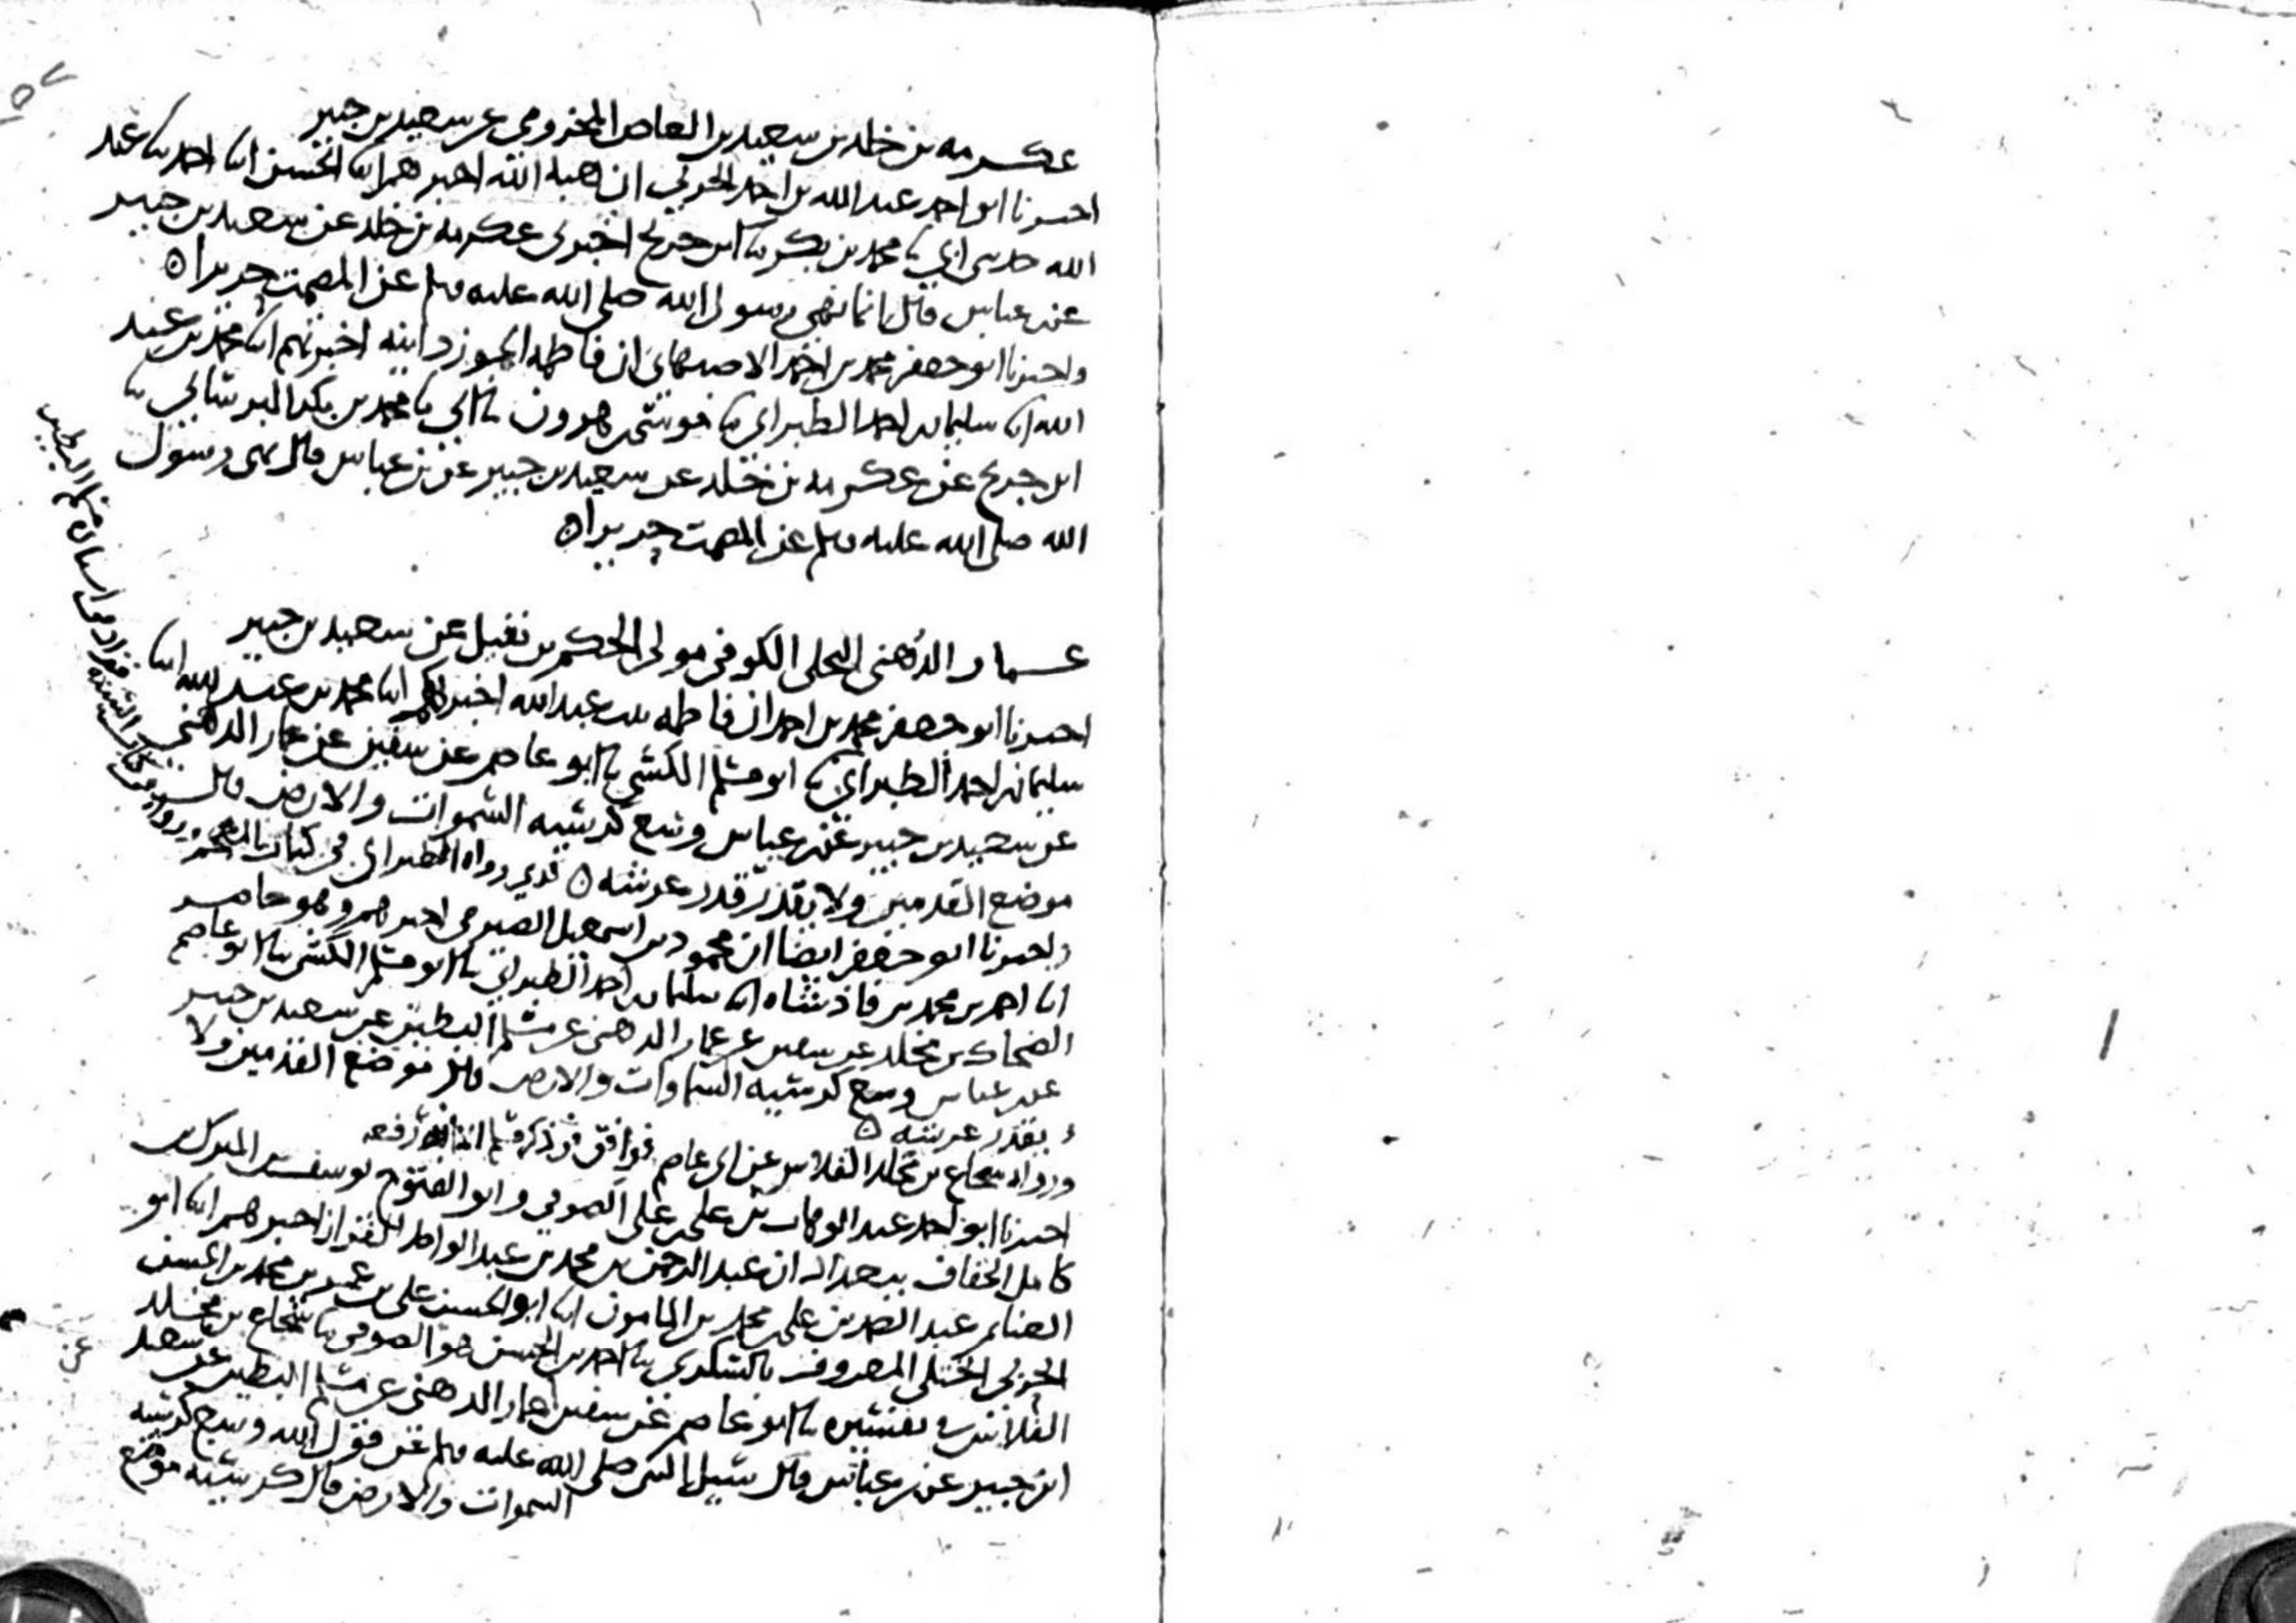 عكرمه بن خلد بن سعيد بن العاص المخزومي عن سعيد بن جبير
اخبرنا ابو احمد عبد الله بن احمد الحربي ان هبه الله اخبرهم ابنا الحسن ابنا احمد بنا عبد
الله حدثني ابي نا محمد بن بكر نا ابن جريج اخبرني عكرمه بن خلد عن سعيد بن جبير
عن بن عباس قال انما نهى رسول الله صلى الله عليه وسلم عن المصمت حريرا ه
واخبرنا ابو جعفر محمد بن احمد الاصبهاني ان فاطمه الجوزدانيه اخبرتهم ابنا محمد بن عبد
الله ابنا سليمان بن احمد الطبراني نا موسى بن هرون نا ابي نا محمد بن بكر البرساني نا
ابن جريج عن عكرمه بن خلد عن سعيد بن جبير عن بن عباس قال نهى رسول
الله صلى الله عليه وسلم عن المصمت حريرا ه
عمار الدهني البجلي الكوفي مولى الحكم بن نفيل عن سعيد بن جبير
اخبرنا ابو جعفر محمد بن احمد ان فاطمه بنت عبد الله اخبرتهم ابنا محمد بن عبد الله ابنا
سليمان بن احمد الطبراني نا ابو مسلم الكشي نا ابو عاصم عن سفين عن عمار الدهني
عن سعيد بن جبير عن بن عباس وسع كرسيه السموات والارض قال
موضع القدمين ولا يقدر قدر عرشه ه رواه الطبراني في كتاب
واخبرنا ابو جعفر ايضا ان محمود بن اسمعيل الصيرفي اخبرهم وهو حاضر
ابنا احمد بن محمد بن فاذشاه ابنا سليمان بن احمد الطبراني نا ابو مسلم الكشي نا ابو عاصم
الضحاك بن مخلد عن سفين عن عمار الدهني عن مسلم البطين عن سعيد بن جبير
عن بن عباس وسع كرسيه السماوات والارض قال موضع القدمين ولا
يقدر عرشه ه
ورواه شجاع بن مخلد الفلاس عن ابي عاصم رفعه
اخبرنا ابو احمد عبد الوهاب بن علي بن علي الصوفي وابو الفتوح يوسف بن المبرك بن
كامل الخفاف ببغداد ان عبد الرحمن بن محمد بن عبد الواحد القزاز اخبرهم ابنا ابو
الغنايم عبد الصمد بن علي بن محمد بن المامون ابنا ابو الحسن علي بن عمر بن محمد بن الحسن
الحربي الختلي المعروف بالسكري نا احمد بن الحسن هو الصوفي نا شجاع بن مخلد
الفلاس في تفسيره نا ابو عاصم عن سفين عن عمار الدهني عن مسلم البطين عن سعيد
ابن جبير عن بن عباس قال سيل النبي صلى الله عليه وسلم عن قول الله وسع كرسيه
السموات والارض قال كرسيه موضع